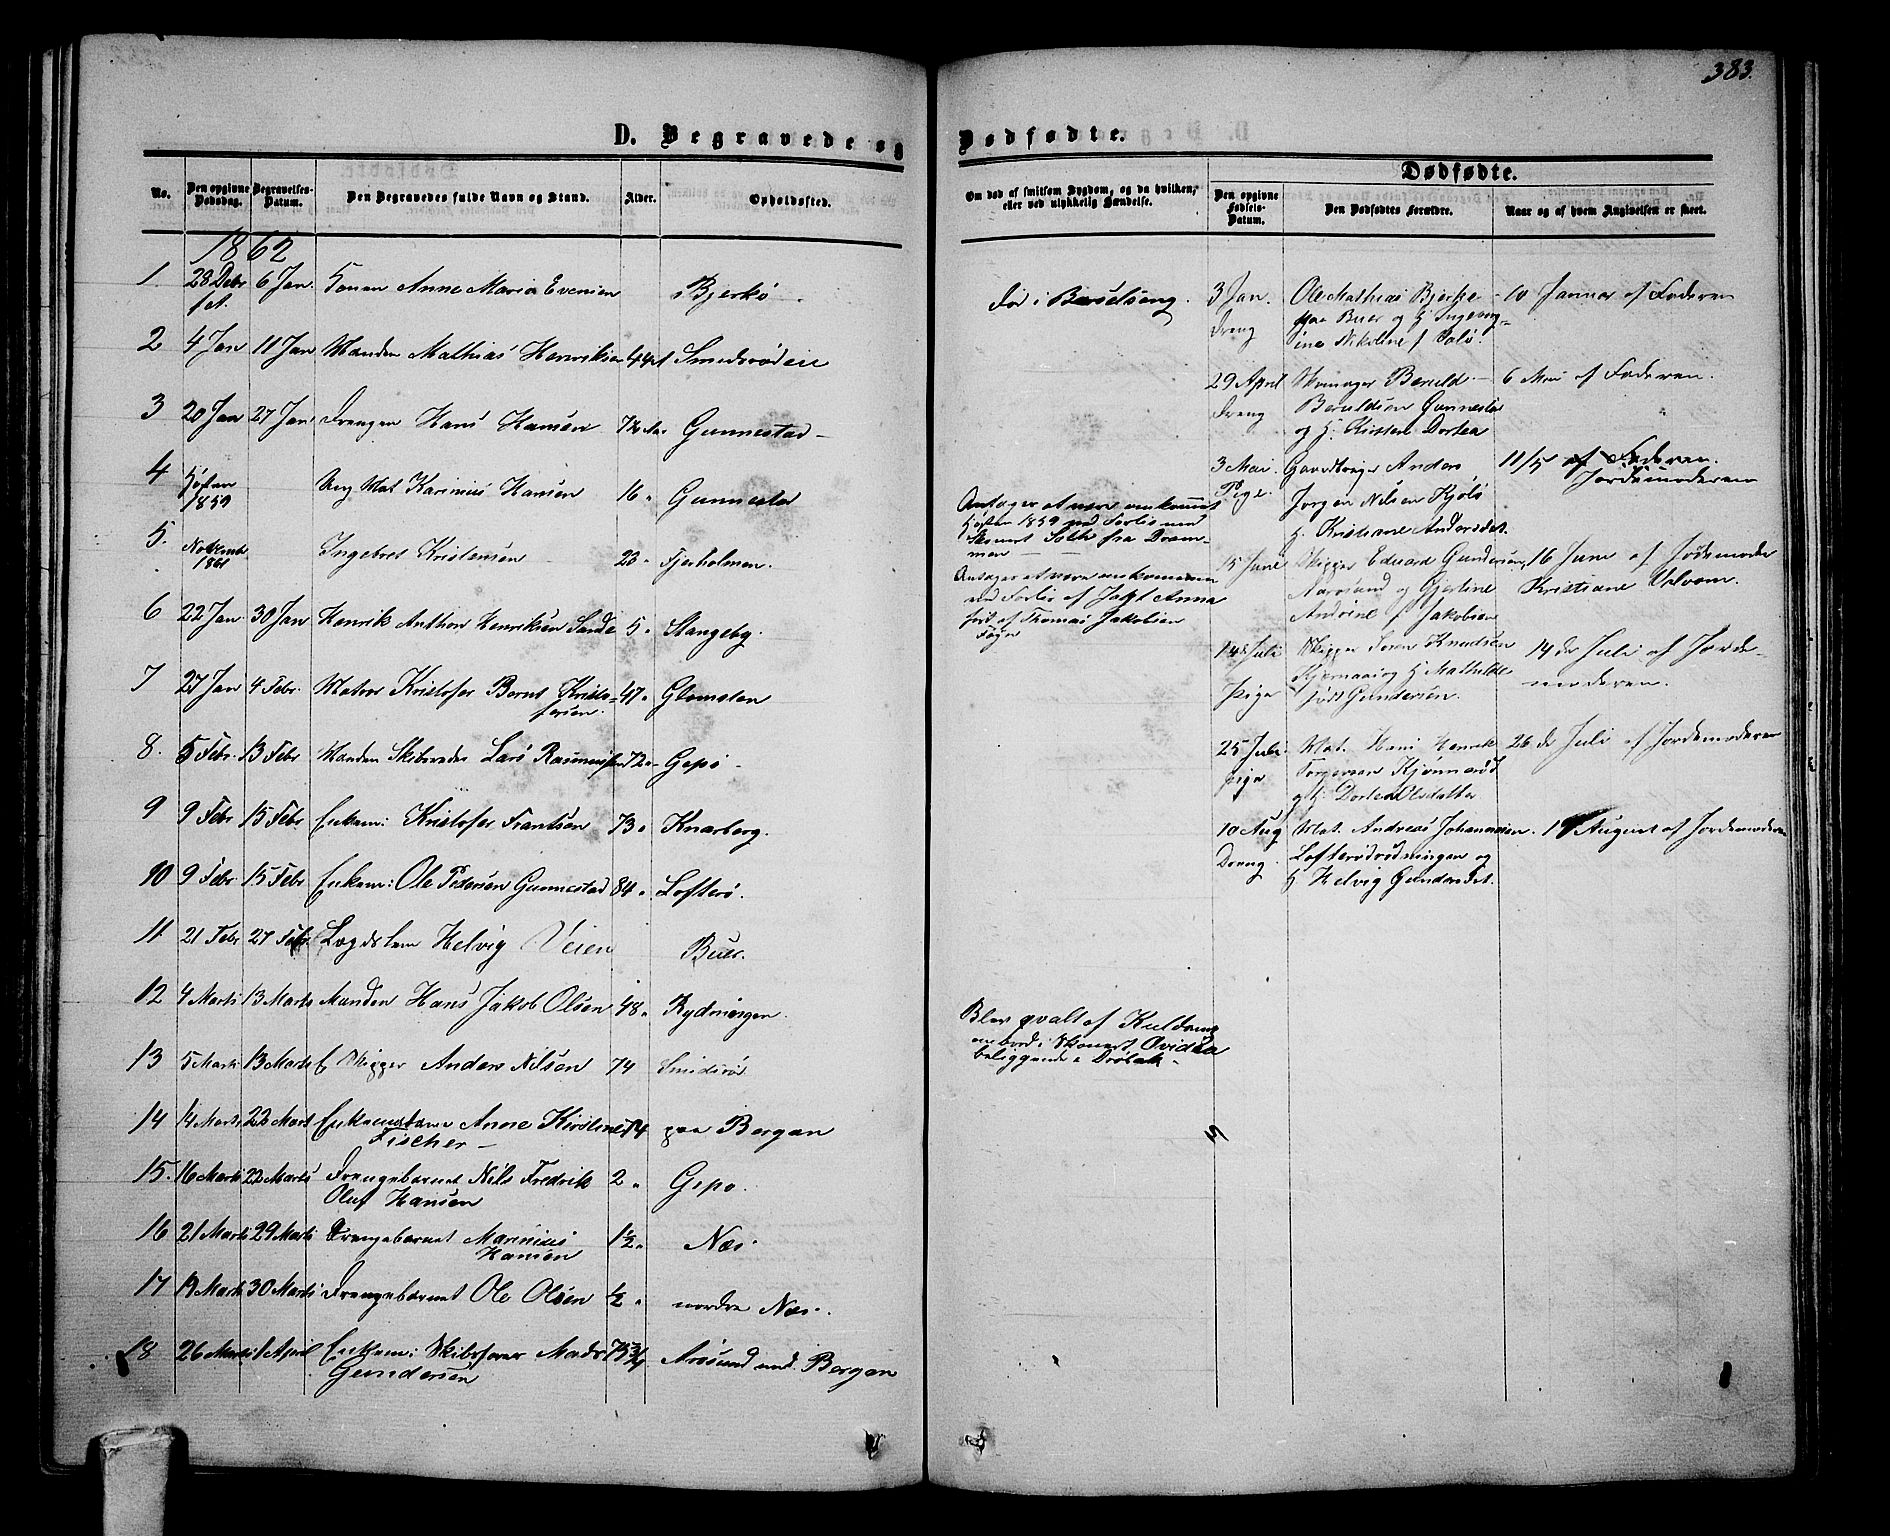 383.
D. Begravede og Dødfødte.
No.
Den opgivne Dødsdag.
Begravelses-Datum.
Den Begravedes fulde Navn og Stand.
Alder.
Opholdssted.
Om død af smitsom Sygdom, og da hvilken; eller ved ulykkelig Hændelse.
Dødfødte.
Den opgivne Fødsels-Datum.
Den Dødfødtes Forældre.
Naar og af hvem Angivelsen er skeet.
1862
1. 28 Debr 6 Jan. Konen Anne Maria Evensen Bjerkø
2 4 Jan 11 Jan Manden Mathias Henriksen 44 Smedsrøden
3 20 Jan 27 Jan Drengen Hans Hansen Gunnestad
4 Høsten 1859 Ung Mat Karinius Hansen 16 " Gunnestad
5. Novemb 1861 Ingebret Kristensen 23 " Fjerholmen.
6 22 Jan 30 Jan Henrik Anthon Henriksen Sande 5 " Stangeby.
7 27 Jan 4 Febr. Matros Kristofer Bernt Kristofersen. 47 " Glomsten
8. 5 Febr. 13 Febr Manden Skibsreder Lars Rasmussen 72 " Gipø
9 9 Febr 15 Febr. Enkem: Kristofer Frantsen 73 " Knarberg.
10 9 Febr 15 Febr Enkem: Ole Pedersen Gunnestad 84 " Lofterø.
11. 21 Febr 27 Febr. Lægdslem Helvig Veien Buer.
12 4 Marts 13 Marts Manden Hans Jakob Olsen 48 " Rydningen.
13 5 Marts 13 Marts E Skipper Anders Nilsen 74 Smidsrø.
14 14 Marts 22 Marts Anne Kirstine
Fischer paa Bergan
15. 16 Marts 22 Marts Drengebarnet Nils Fredrik 2 " Gipø.
Oluf Hansen
16 21 Marts 29 Marts Drengebarnet Marinius 1½ " Næs.
Hansen
17 19 Marts 30 Marts Drengebarnet Ole Olsen ½ " nordre Næs.
18 26 Marts 1 April Enkem: Skibsfører Mads 75 3/4 Arøsund ved Bergan
Gundersen
Død i Barselseng.
Antages at være omkommet
Høsten 1859 ved Forlis med
Skonnert Seth fra Drammen
Antages at være omkommen
ved Forlis af Jagt Anna
ført af Thomas Jakobsen
Blev qvalt af Kuldamp
ombord i Skonert Ovidia
beliggende i Drøbak
3 Jan. Ole Mathias Bjerke 10 Januar af Faderen
Dreng paa Buer og H Ingeborg-
ine Nikoline f Valø.
29 April Skomager Beruld 6 Mai af Faderen.
Dreng Beruldsen Gunnestad
og H. Kirsten Dortea
3 Mai. Gaardbruger Anders 11/5 af Faderen.
Pige. Jørgen Nilsen Kjølø Jordemoderen
H. Kristiane Andersdt.
15 Juni Skipper Eduard Gundersen, 16 Juni af Jordemoder
Narøsund og Gjertine Kristiane Ulvom.
Andrine f Jakobsen
14 Juli Skipper Søren Knudsen 14 de Juli af Jorde-
Pige Kjernaas og H Mathilde moderen.
født Gundersen.
25 Juli Mat. Hans Henrik 26 de Juli af Jordemoderen
Pige Torgersen Kjønnerød
og H. Dortea Olsdatter
10 Aug Mat. Andreas Johannesen. August af Jordemoderen
Dreng Lofterødrødningen og
H Helvig Gundersdt.